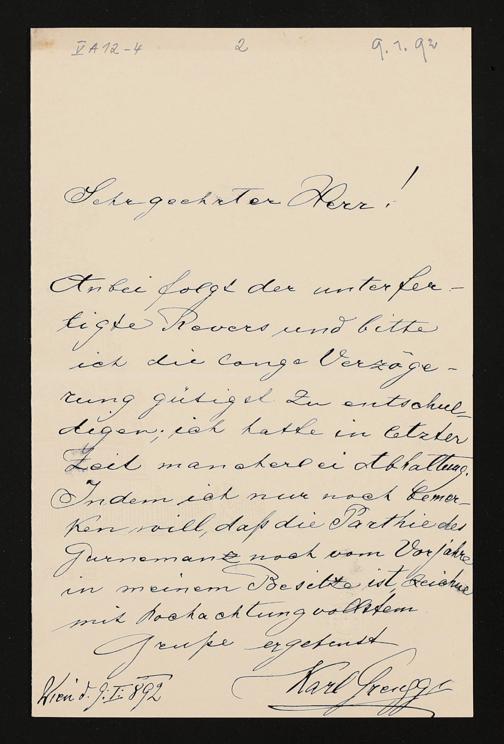 V A 12-4 2 9.1.92
Sehr geehrter Herr!
Anbei folgt der unterfer-
tigte Revers und bitte
ich die lange Verzöge-
rung gütigst zu entschul-
digen; ich hatte in letzter
Zeit mancherlei Abhaltung.
Indem ich nur noch bemer-
ken will, daß die Parthie des
Gurnemanz noch vom Vorjahre
in meinem Besitze ist, zeichne
mit hochachtungvollstem
Gruße ergebenst
Karl Grengg
Wien d. 9. I. 892